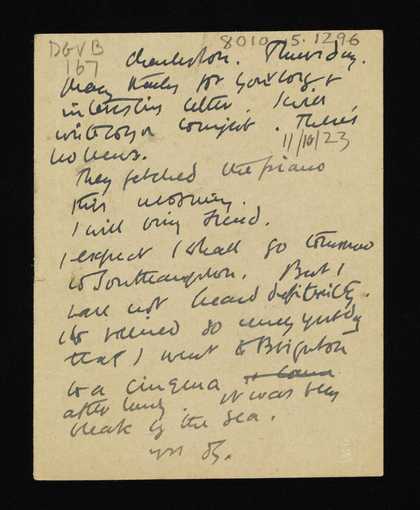 DGVB
167
8010.5.1296
Charleston. Thursday.
Many thanks for your long &
interesting letter. I will
write to you tonight. There's
no news.
11/10/23
They fetched the piano
this morning.
I will bring
I expect I shall go tomorrow
to Southampton. But I
have not heard definitely.
It so very yesterday
that I went to Brighton
to a cinema
after lunch. It was very
bleak by the sea.
yrs